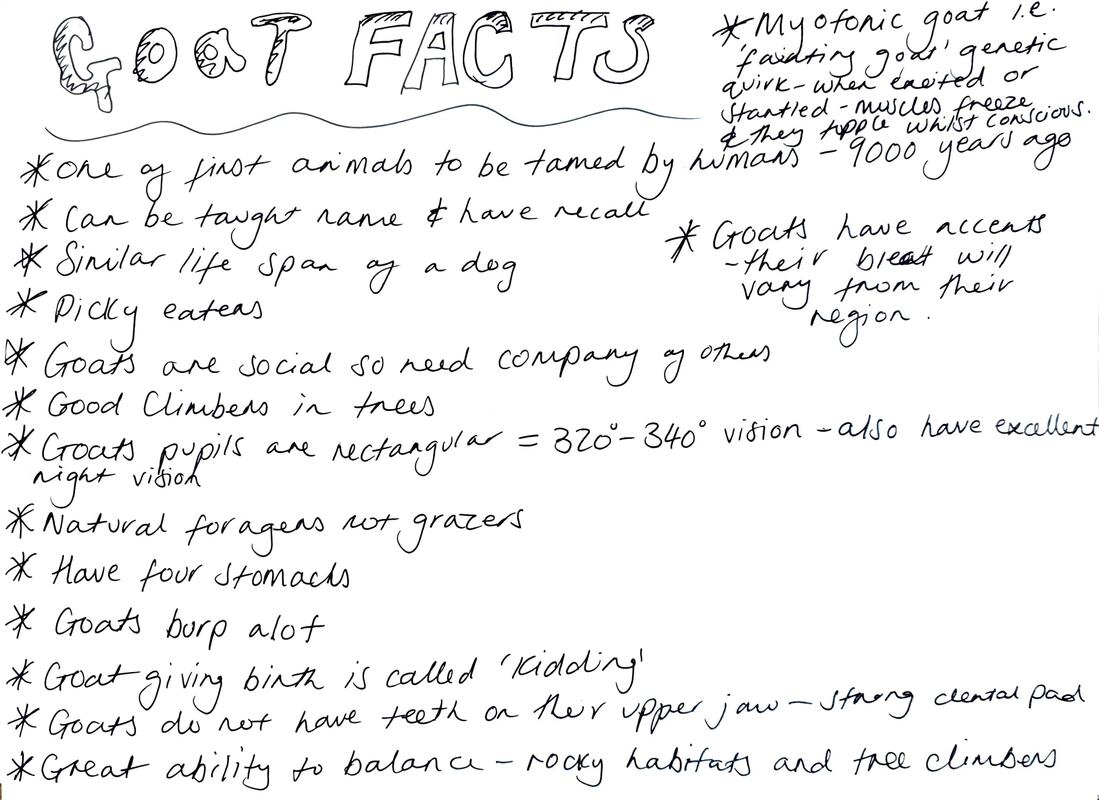 Goat FACTS
* Myotonic goat i.e.
'fainting goat' genetic
quirk - when excited or
startled - muscles freeze
& they topple whilst conscious.
* one of first animals to be tamed by humans - 9000 years ago
* Can be taught name & have recall
* Similar life span of a dog
* Picky eaters
* Goats have accents
- their bleat will
vary from their
region.
* Goats are social so need company of others
* Good Climbers in trees
* Goats pupils are rectangular = 320° - 340° vision - also have excellent
night vision
* Natural foragers not grazers
* Have four stomachs
* Goats burp alot
* Goat giving birth is called 'Kidding'
* Goats do not have teeth on their upper jaw - strong dental pad
* Great ability to balance - rocky habitats and tree climbers